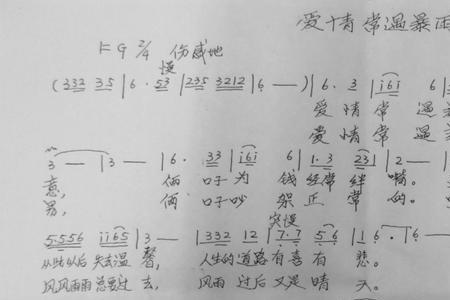 爱情常遇暴雨
F G 2/4 伤感地
慢
( 332 35 | 6 · 53 | 235 3212 | 6 — ) | 6 · 3 | i6i 6 |
爱 情 常 遇
爱 情 常 遇
3 — | 3 — | 6 · 33 | i6i 6 | 1·3 23 | 2 — |
意, 俩 口子为 钱 经常 绊 嘴。
易, 俩 口子吵 架 正 常 的。
突慢
5556 ii65 | 3 — | 332 12 | 7·7 56 | 16 · | 6 —
从此以后 失去温 馨, 人生的 道路 有喜 有 悲。
风风雨雨 总要过 去, 风雨 过后 又是 晴 天。